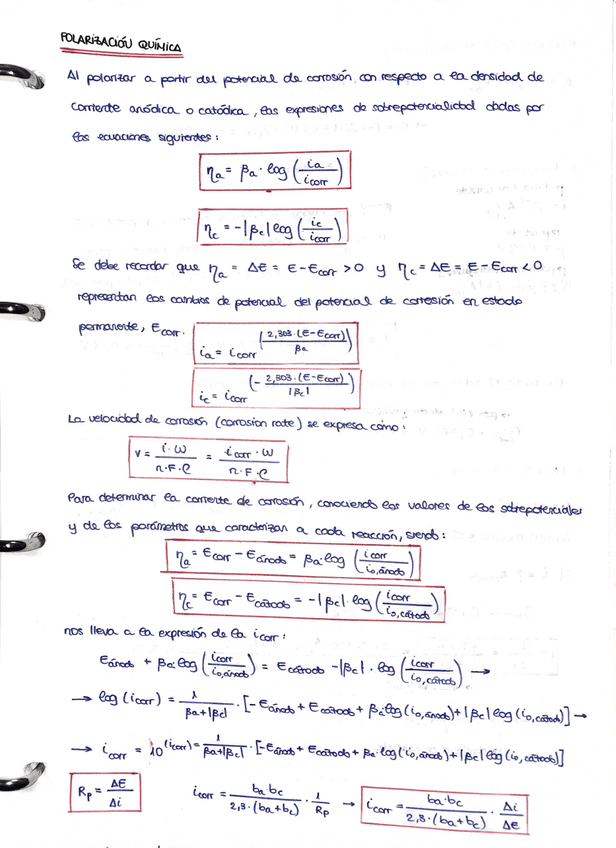 POLARIZACIÓN QUÍMICA
Al polarizar a partir del potencial de corrosión, con respecto a la densidad de
corriente anódica o catódica, las expresiones de sobrepotencialidad dadas por
las ecuaciones siguientes:
ηa = βa · log (ia / icorr)
ηc = -|βc| log (ic / icorr)
Se debe recordar que ηa = ΔE = E - Ecorr > 0 y ηc = ΔE = E - Ecorr < 0
representan los cambios de potencial del potencial de corrosión en estado
permanente, Ecorr.
ia = icorr^(2,303·(E-Ecorr) / βa)
ic = icorr^(- 2,303·(E-Ecorr) / |βc|)
La velocidad de corrosión (corrosion rate) se expresa como:
v = i·W / n·F·ρ = icorr·W / n·F·ρ
Para determinar la corriente de corrosión, conociendo los valores de los sobrepotenciales
y de los parámetros que caracterizan a cada reacción, siendo:
ηa = Ecorr - Eánodo = βa·log (icorr / io,ánodo)
ηc = Ecorr - Ecátodo = -|βc|·log (icorr / io,cátodo)
nos lleva a la expresión de la icorr:
Eánodo + βa·log (icorr / io,ánodo) = Ecátodo - |βc| · log (icorr / io,cátodo) →
→ log (icorr) = 1 / βa+|βc| · [-Eánodo + Ecátodo + βa·log(io,ánodo) + |βc| log (io,cátodo)] →
→ icorr = 10^(icorr) = 1 / βa+|βc| · [-Eánodo + Ecátodo + βa·log(io,ánodo) + |βc| log (io,cátodo)]
Rp = ΔE / Δi icorr = ba·bc / 2,3·(ba+bc) · 1 / Rp → icorr = ba·bc / 2,3·(ba+bc) · Δi / ΔE